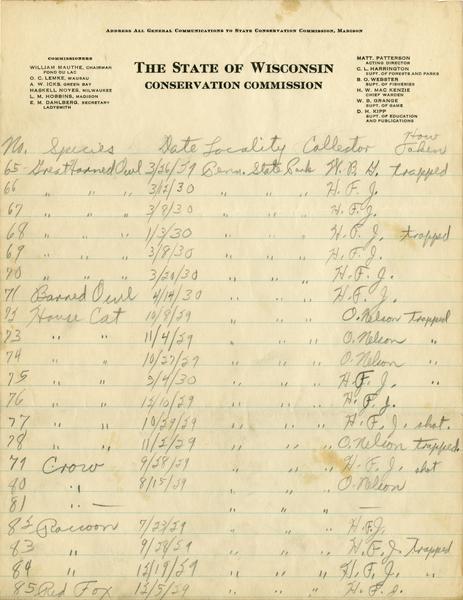 ADDRESS ALL GENERAL COMMUNICATIONS TO STATE CONSERVATION COMMISSION, MADISON
COMMISSIONERS
WILLIAM MAUTHE, CHAIRMAN
FOND DU LAC
O. C. LEMKE, WAUSAU
A. W. ICKS, GREEN BAY
HASKELL NOYES, MILWAUKEE
L. M. HOBBINS, MADISON
E. M. DAHLBERG, SECRETARY
LADYSMITH
THE STATE OF WISCONSIN
CONSERVATION COMMISSION
MATT. PATTERSON
ACTING DIRECTOR
C. L. HARRINGTON
SUPT. OF FORESTS AND PARKS
B. O. WEBSTER
SUPT. OF FISHERIES
H. W. MAC KENZIE
CHIEF WARDEN
W. B. GRANGE
SUPT. OF GAME
D. H. KIPP
SUPT. OF EDUCATION
AND PUBLICATIONS
No. Species Date Locality Collector How Taken
65 Great Horned Owl 3/26/29 Penn. State Park W. B. G. trapped
66 " " " 3/12/30 " " " H. F. J.
67 " " " 3/8/30 " " " H. F. J.
68 " " " 1/3/30 " " " H. F. J. trapped
69 " " " 3/8/30 " " " H. F. J.
70 " " " 3/20/30 " " " H. F. J.
71 Barred Owl 4/14/30 " " " H. F. J.
72 House Cat 10/8/29 " " " O. Nelson trapped
73 " " 11/4/29 " " " O. Nelson "
74 " " 10/27/29 " " " O. Nelson "
75 " " 2/4/30 " " " H. F. J. "
76 " " 12/10/29 " " " H. F. J.
77 " " 10/29/29 " " " H. F. J. shot.
78 " " 11/2/29 " " " O. Nelson trapped.
79 Crow 9/28/29 " " " H. F. J. shot
80 " 8/15/29 " " " O. Nelson
81 " — " " " —
82 Raccoon 7/23/29 " " " H. F. J.
83 " 9/28/29 " " " H. F. J. Trapped
84 " 12/19/29 " " " H. F. J. "
85 Red Fox 12/5/29 " " " H. F. J.